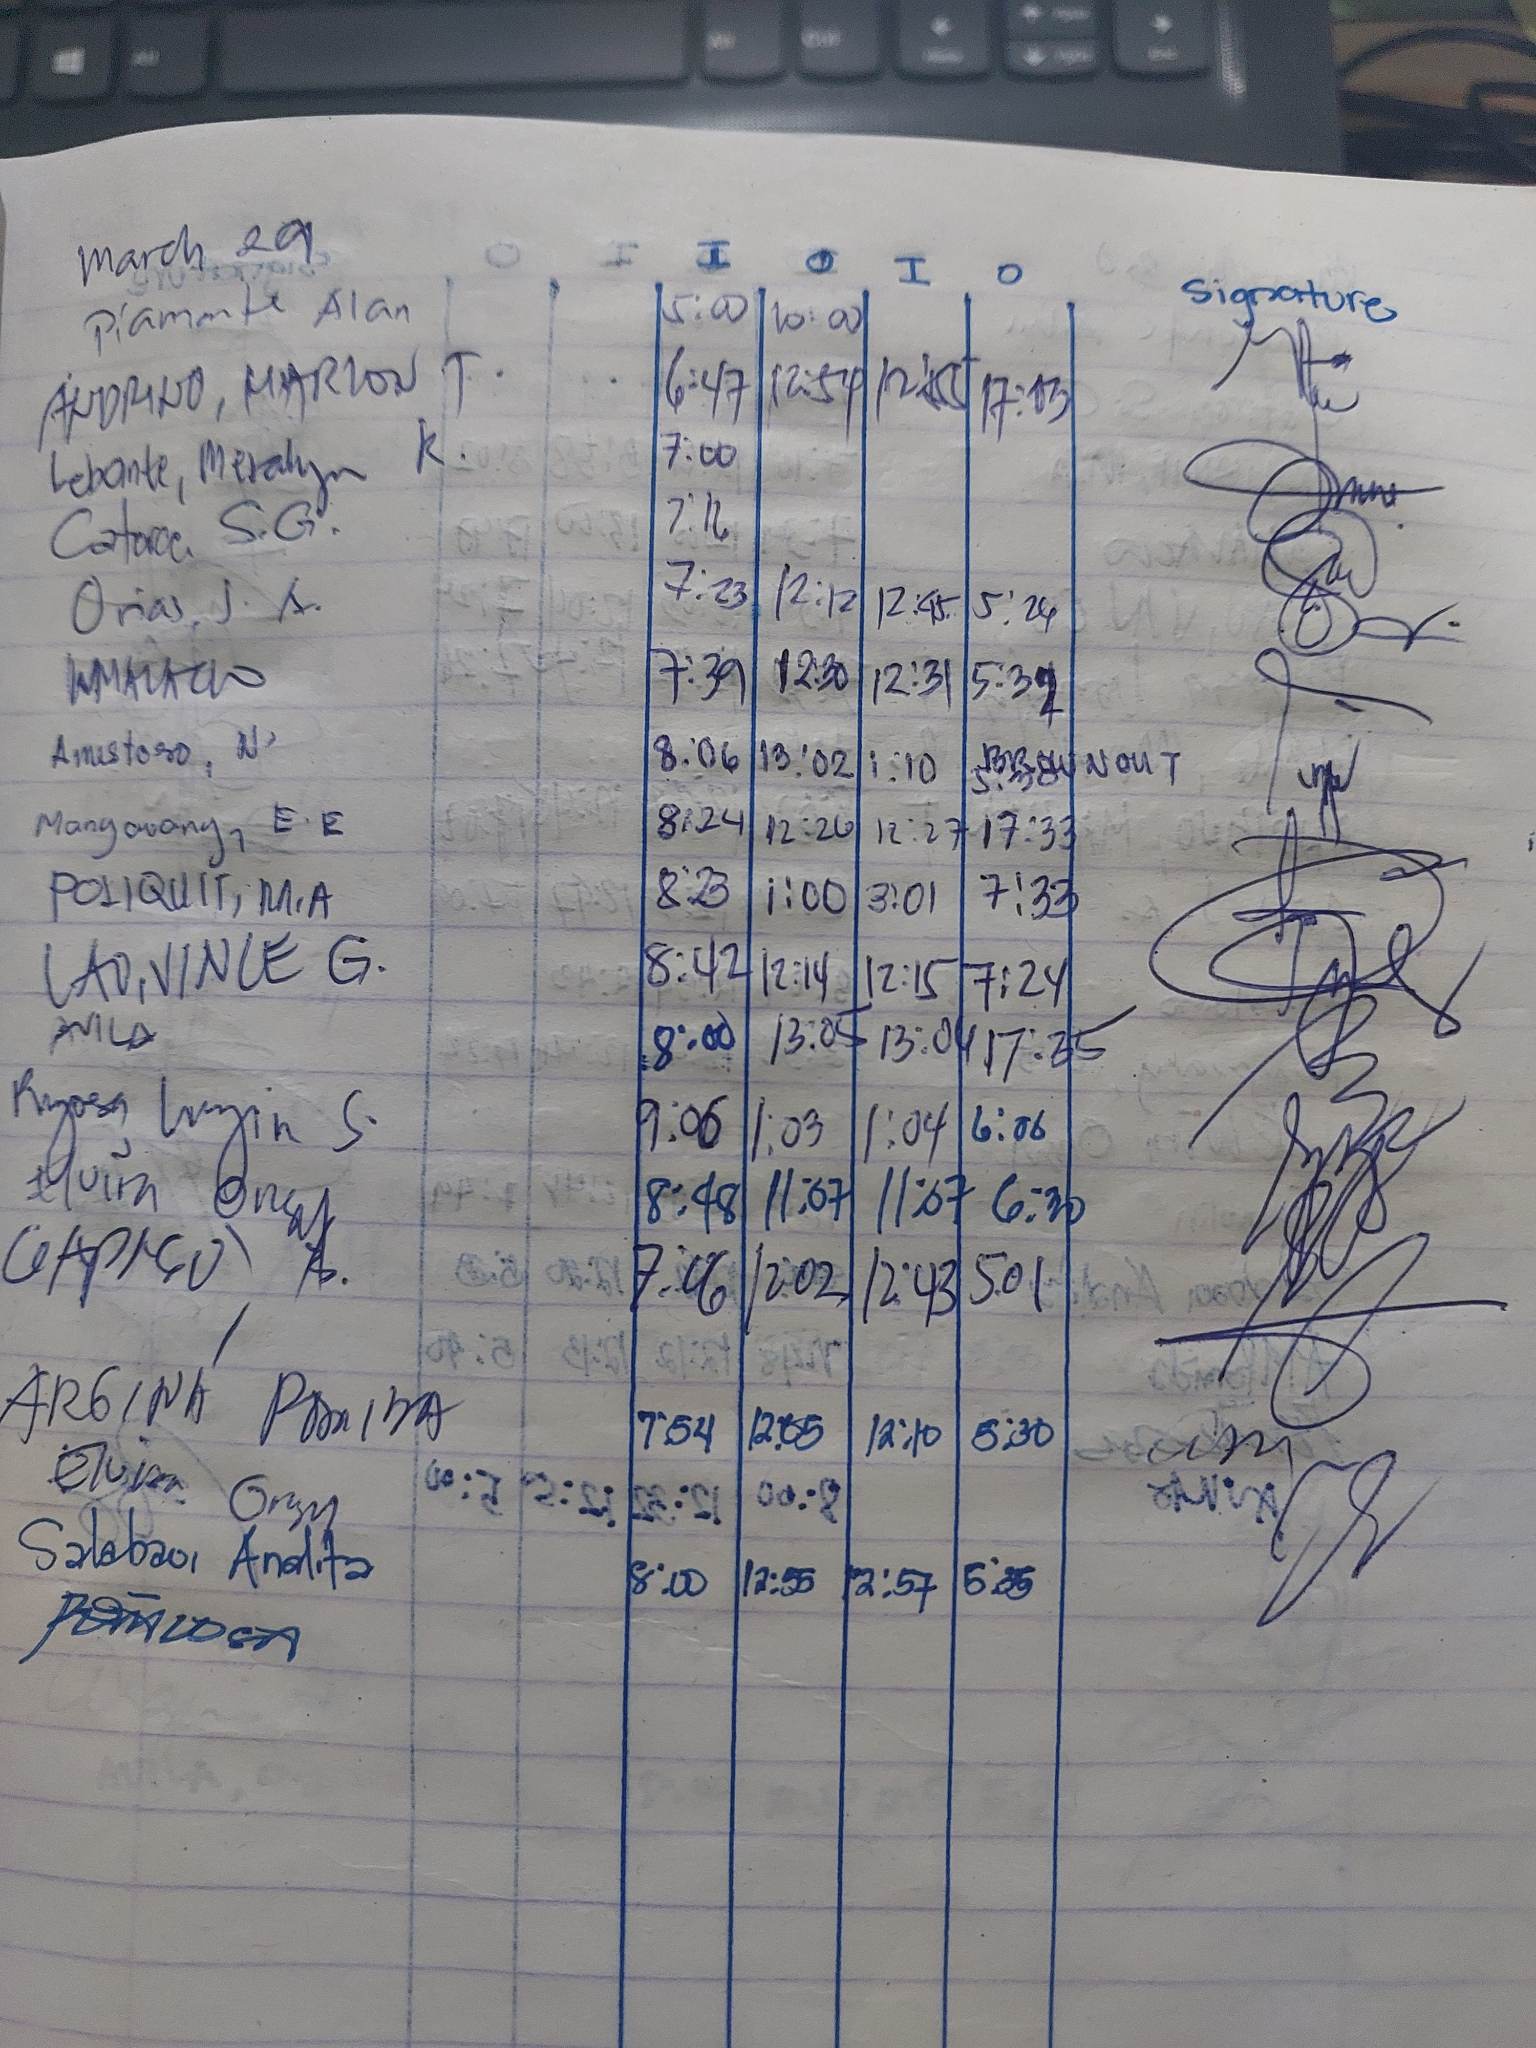 March 29 I O I O Signature
Piamonte Alan 5:00 10:00
ANDRINO, MARLON T. 6:47 12:54 12:55 17:03
Lebante, Meralyn K. 7:00
Catorce S.G. 7:16
Orias, J. A. 7:23 12:12 12:45 5:26
AMALATCO 7:39 12:30 12:31 5:39
Amistoso, N. 8:06 13:02 1:10 BROWNOUT
Mangavang, E.E 8:24 12:26 12:27 17:33
POLIQUIT, M.A 8:23 1:00 3:01 7:33
LAO, VINCE G. 8:42 12:14 12:15 7:24
AVILA 8:00 13:05 13:04 17:35
S. 9:06 1:03 1:04 6:06
Elvira Orgy 8:48 11:07 11:07 6:30
CAPISO A. 7:46 12:02 12:43 5:01
ARGINA 7:54 12:05 12:10 5:30
Elvira Orgy
Salabao, Analita 8:00 12:55 12:57 5:35
PEÑALOSA